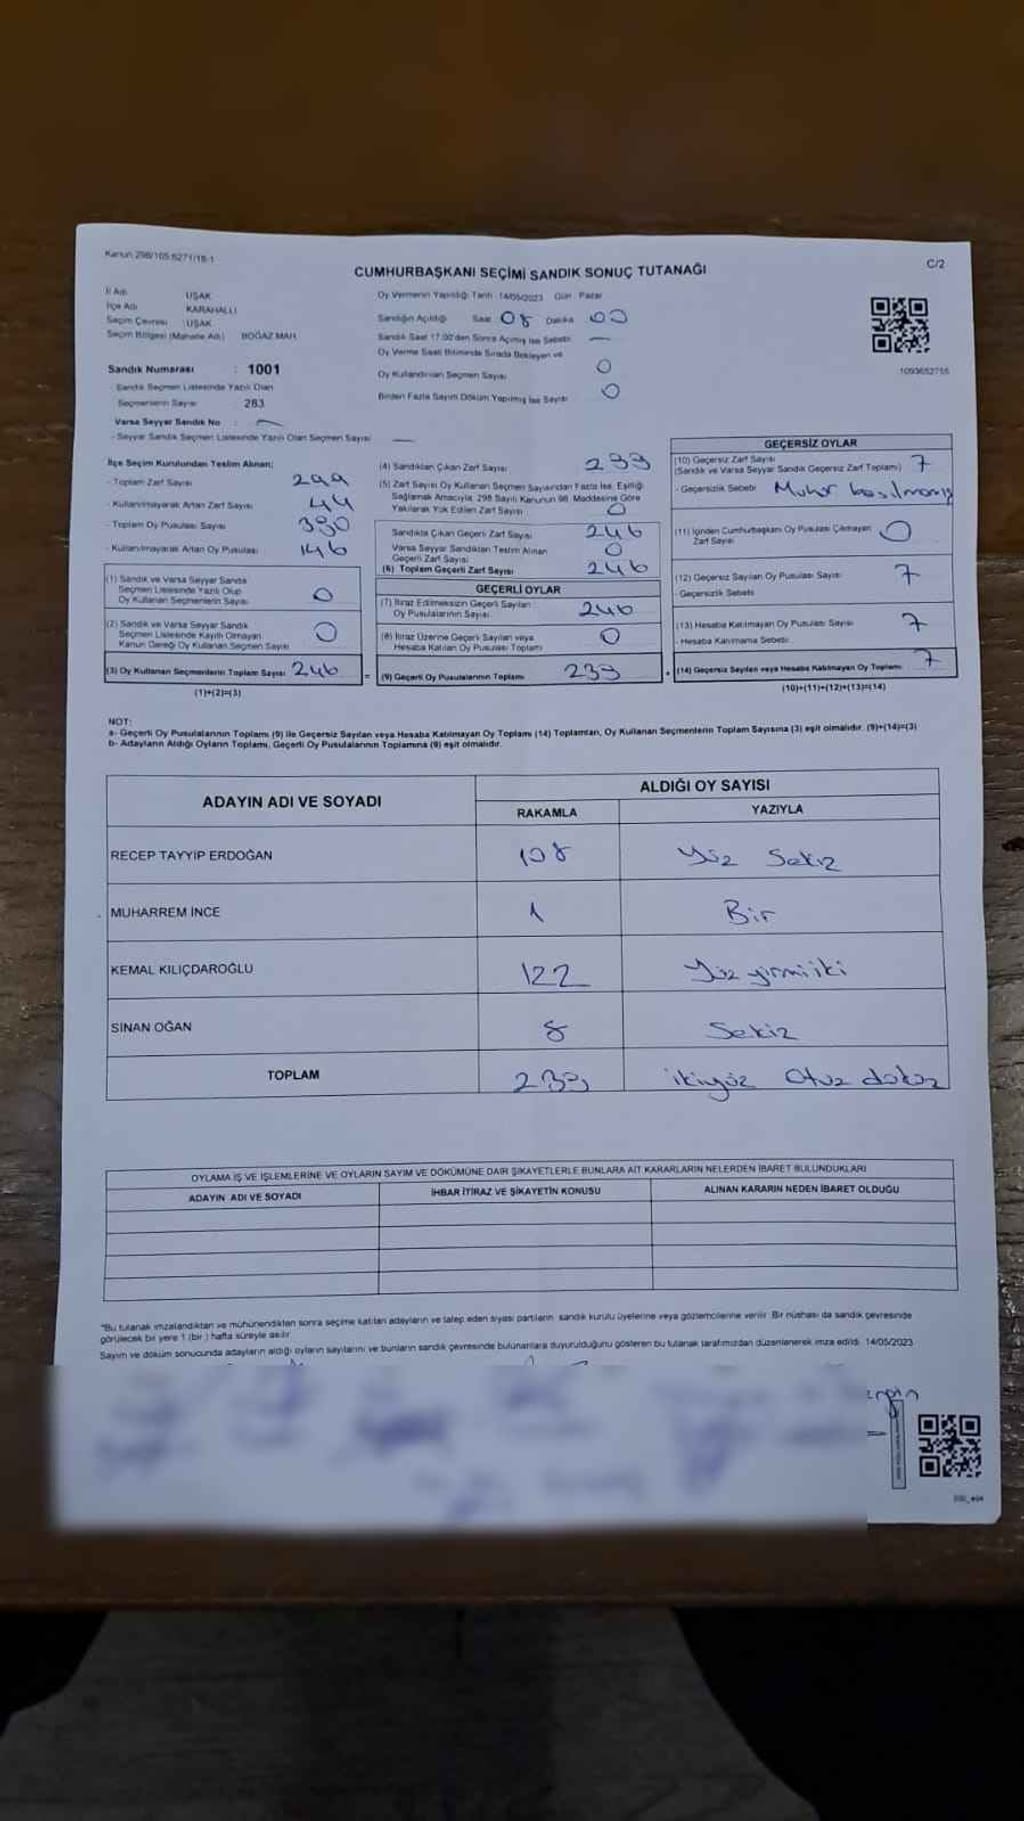 Kanun 298/105;6271/18-1
C/2
CUMHURBAŞKANI SEÇİMİ SANDIK SONUÇ TUTANAĞI
İl Adı UŞAK
İlçe Adı KARAHALLI
Seçim Çevresi : UŞAK
Seçim Bölgesi (Mahalle Adı) BOĞAZ MAH
Sandık Numarası : 1001
- Sandık Seçmen Listesinde Yazılı Olan
Seçmenlerin Sayısı 283
Varsa Seyyar Sandık No : —
- Seyyar Sandık Seçmen Listesinde Yazılı Olan Seçmen Sayısı —
Oy Vermenin Yapıldığı Tarih : 14/05/2023 Gün : Pazar
Sandığın Açıldığı Saat 08 Dakika 00
Sandık Saat 17:00'den Sonra Açılmış İse Sebebi —
Oy Verme Saati Bitiminde Sırada Bekleyen ve
Oy Kullandırılan Seçmen Sayısı 0
Birden Fazla Sayım Döküm Yapılmış İse Sayısı 0
1093652755
İlçe Seçim Kurulundan Teslim Alınan;
- Toplam Zarf Sayısı 299
- Kullanılmayarak Artan Zarf Sayısı 44
- Toplam Oy Pusulası Sayısı 390
- Kullanılmayarak Artan Oy Pusulası 146
(1) Sandık ve Varsa Seyyar Sandık
Seçmen Listesinde Yazılı Olup
Oy Kullanan Seçmenlerin Sayısı 0
(2) Sandık ve Varsa Seyyar Sandık
Seçmen Listesinde Kayıtlı Olmayan
Kanun Gereği Oy Kullanan Seçmen Sayısı 0
(3) Oy Kullanan Seçmenlerin Toplam Sayısı 246
(1)+(2)=(3)
(4) Sandıktan Çıkan Zarf Sayısı 239
(5) Zarf Sayısı Oy Kullanan Seçmen Sayısından Fazla İse, Eşitliği
Sağlamak Amacıyla 298 Sayılı Kanunun 98. Maddesine Göre
Yakılarak Yok Edilen Zarf Sayısı 0
Sandıkta Çıkan Geçerli Zarf Sayısı 246
Varsa Seyyar Sandıktan Teslim Alınan
Geçerli Zarf Sayısı 0
(6) Toplam Geçerli Zarf Sayısı 246
GEÇERLİ OYLAR
(7) İtiraz Edilmeksizin Geçerli Sayılan
Oy Pusulalarının Sayısı 246
(8) İtiraz Üzerine Geçerli Sayılan veya
Hesaba Katılan Oy Pusulası Toplamı 0
= (9) Geçerli Oy Pusulalarının Toplamı 239
GEÇERSİZ OYLAR
(10) Geçersiz Zarf Sayısı
(Sandık ve Varsa Seyyar Sandık Geçersiz Zarf Toplamı) 7
- Geçersizlik Sebebi Mühür basılmamış
(11) İçinden Cumhurbaşkanı Oy Pusulası Çıkmayan
Zarf Sayısı 0
(12) Geçersiz Sayılan Oy Pusulası Sayısı 7
- Geçersizlik Sebebi
(13) Hesaba Katılmayan Oy Pusulası Sayısı 7
- Hesaba Katılmama Sebebi
+ (14) Geçersiz Sayılan veya Hesaba Katılmayan Oy Toplamı 7
(10)+(11)+(12)+(13)=(14)
NOT:
a- Geçerli Oy Pusulalarının Toplamı (9) ile Geçersiz Sayılan veya Hesaba Katılmayan Oy Toplamı (14) Toplamları, Oy Kullanan Seçmenlerin Toplam Sayısına (3) eşit olmalıdır. (9)+(14)=(3)
b- Adayların Aldığı Oyların Toplamı, Geçerli Oy Pusulalarının Toplamına (9) eşit olmalıdır.
ADAYIN ADI VE SOYADI
ALDIĞI OY SAYISI
RAKAMLA YAZIYLA
RECEP TAYYİP ERDOĞAN 108 Yüz Sekiz
MUHARREM İNCE 1 Bir
KEMAL KILIÇDAROĞLU 122 Yüz yirmiiki
SİNAN OĞAN 8 Sekiz
TOPLAM 239 ikiyüz Otuz dokuz
OYLAMA İŞ VE İŞLEMLERİNE VE OYLARIN SAYIM VE DÖKÜMÜNE DAİR ŞİKAYETLERLE BUNLARA AİT KARARLARIN NELERDEN İBARET BULUNDUKLARI
ADAYIN ADI VE SOYADI İHBAR İTİRAZ VE ŞİKAYETİN KONUSU ALINAN KARARIN NEDEN İBARET OLDUĞU
"Bu tutanak imzalandıktan ve mühürlendikten sonra seçime katılan adayların ve talep eden siyasi partilerin sandık kurulu üyelerine veya gözlemcilerine verilir. Bir nüshası da sandık çevresinde
görülecek bir yere 1 (bir ) hafta süreyle asılır.
Sayım ve döküm sonucunda adayların aldığı oyların sayılarını ve bunların sandık çevresinde bulunanlara duyurulduğunu gösteren bu tutanak tarafımızdan düzenlenerek imza edildi. 14/05/2023